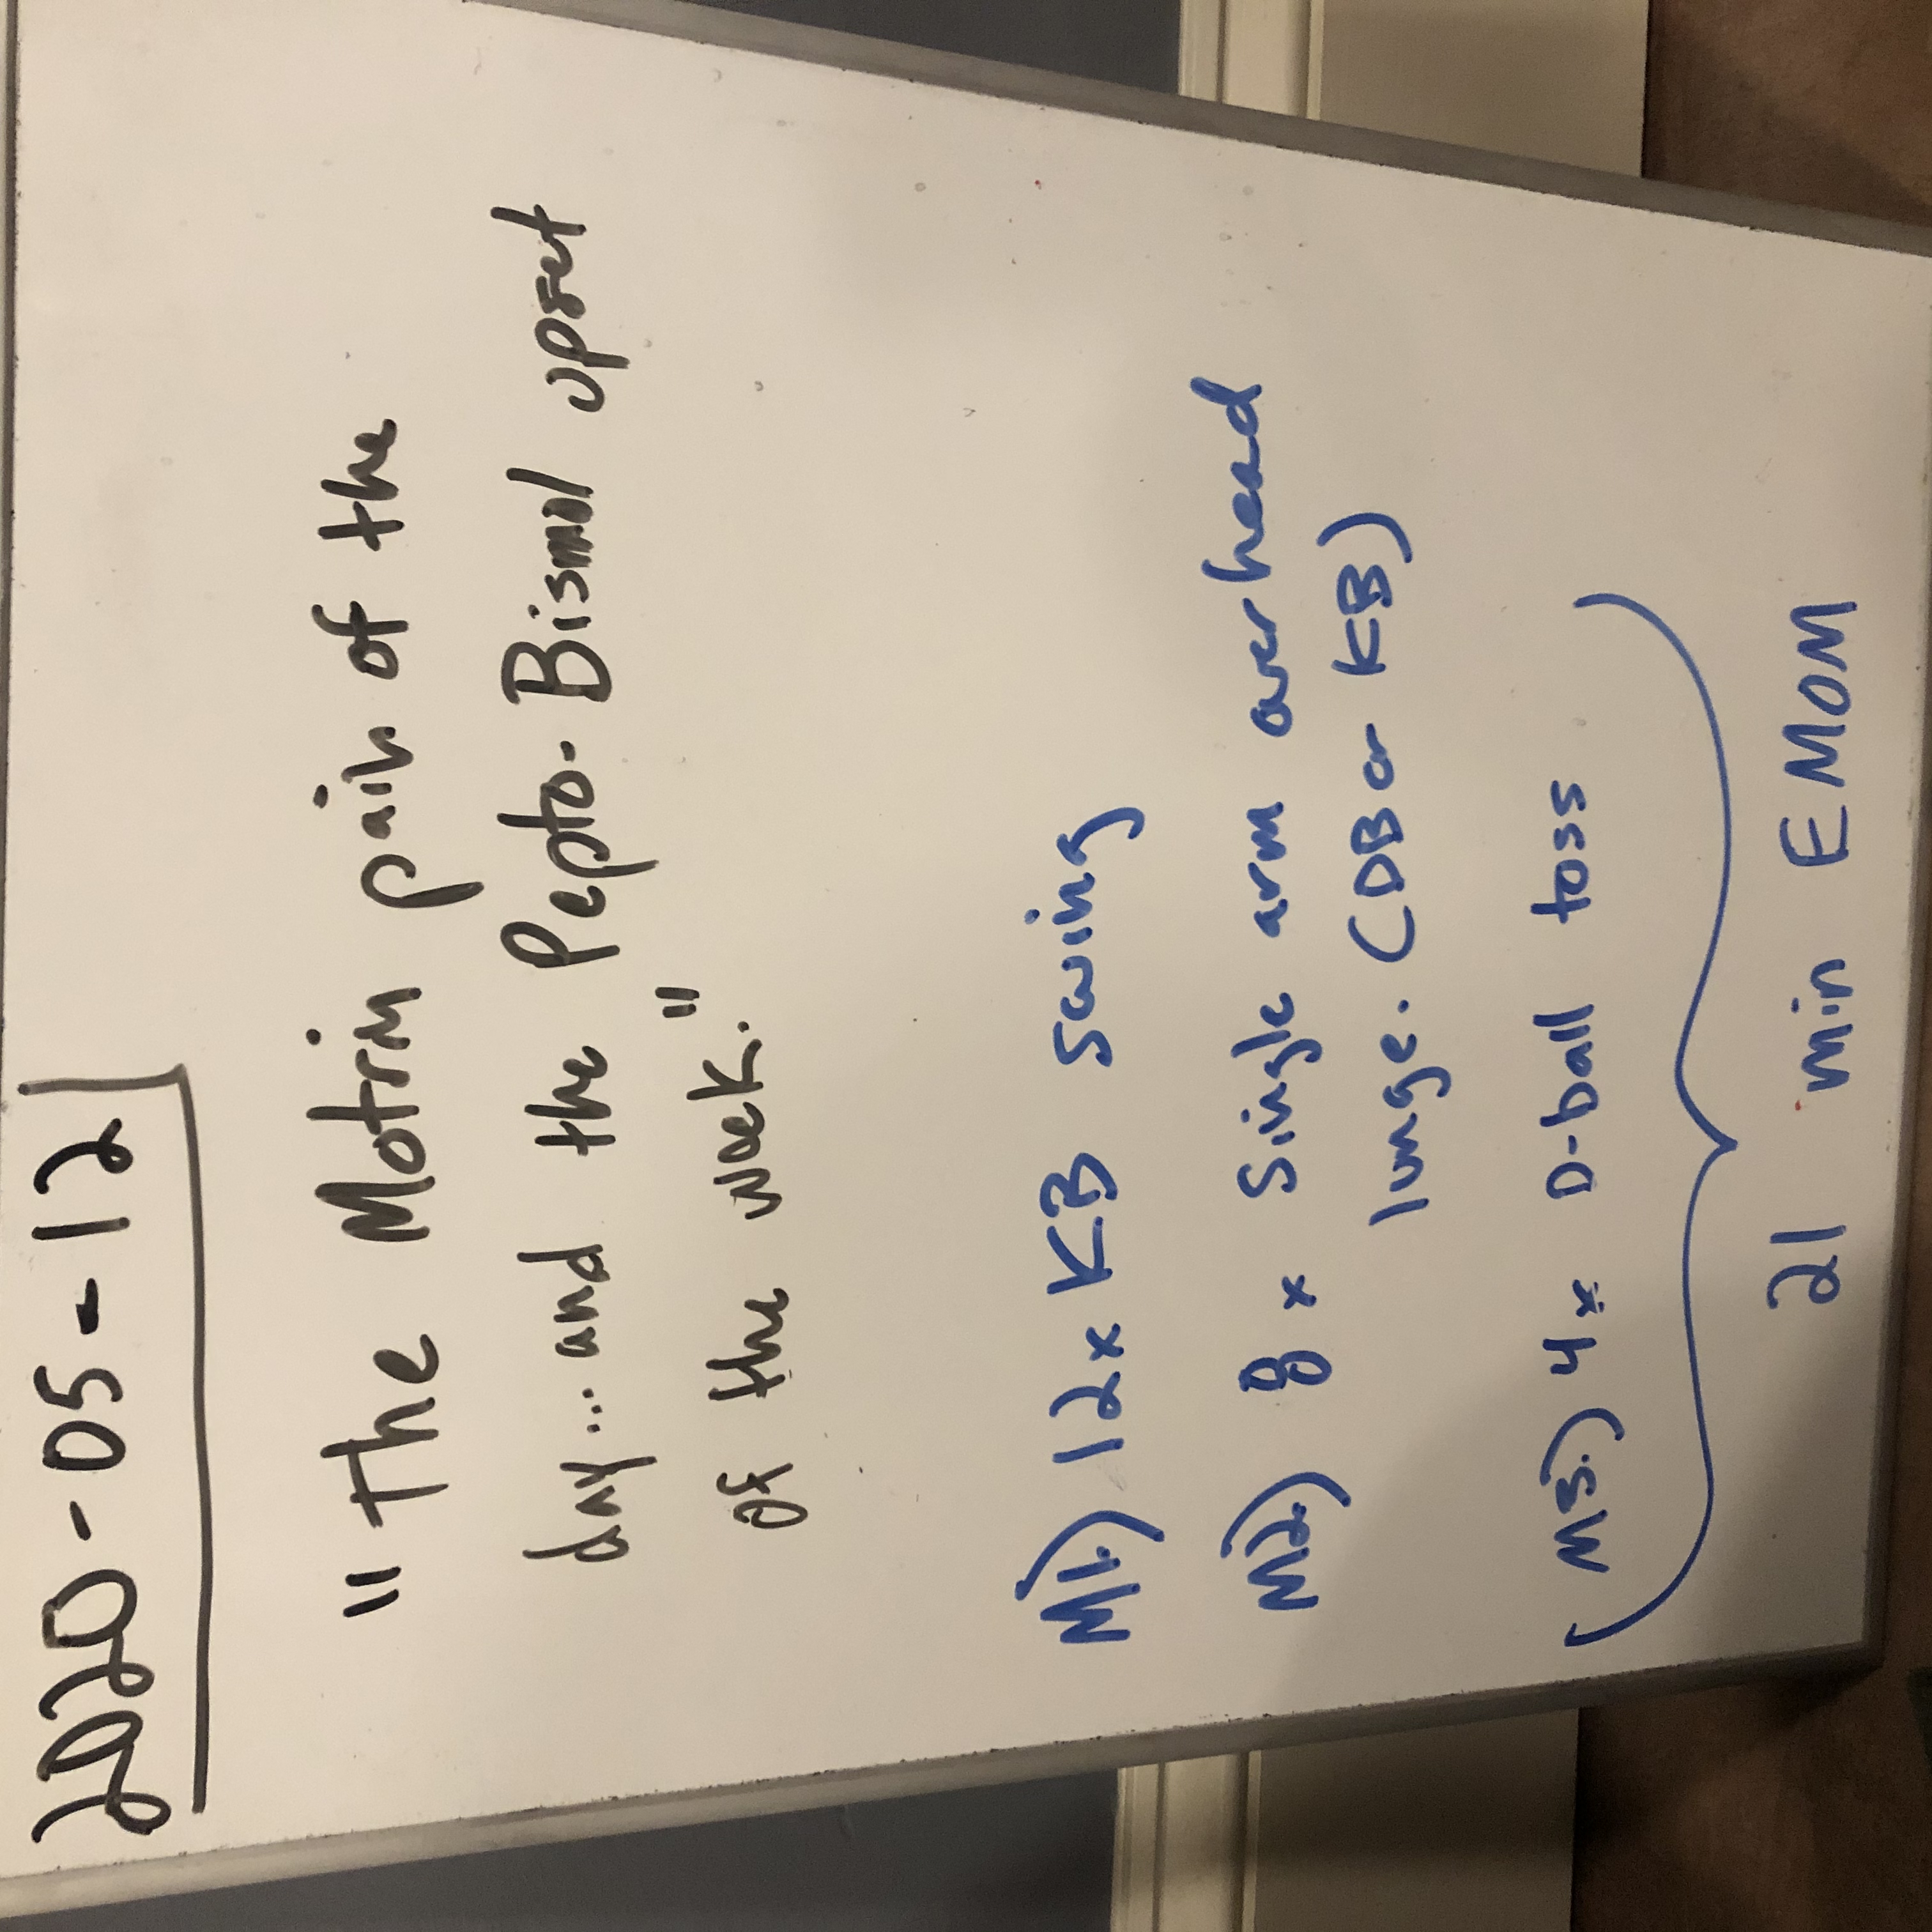 2020-05-12
"The Motrin pain of the
day... and the Pepto-Bismol upset
of the week."
M1.) 12x KB swing
M2.) 8x Single arm overhead
lunge. (DB or KB)
M3.) 4x D-ball toss
21 min EMOM